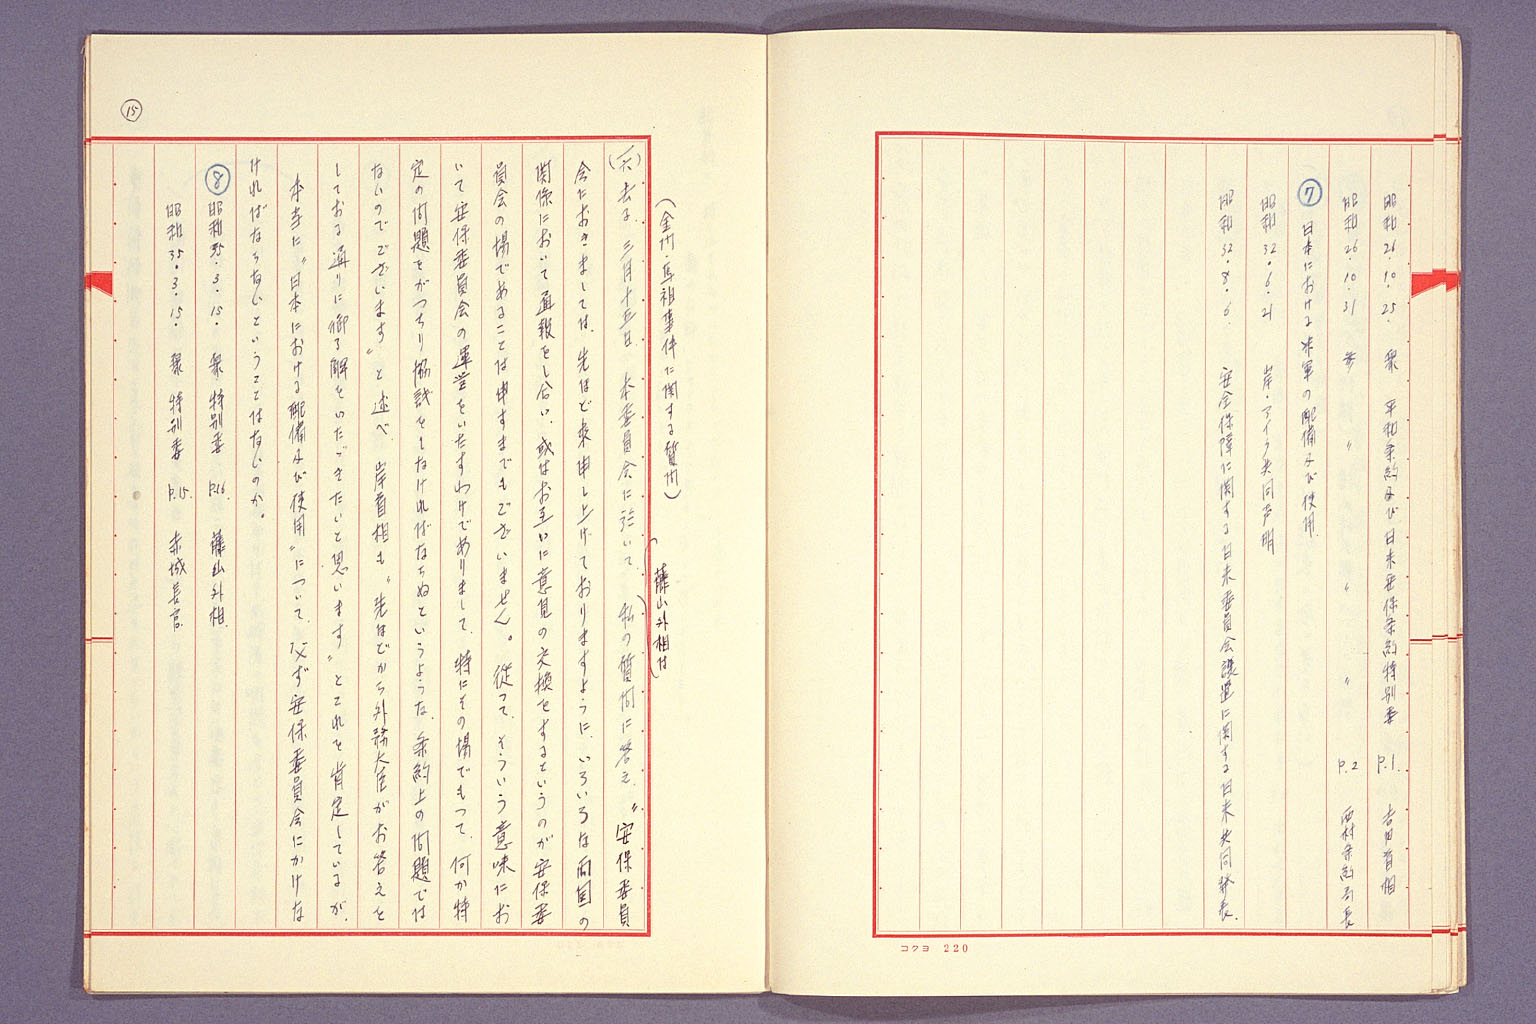 昭和26.10.25. 衆 平和条約及び日米安保条約特別委 P.1. 吉田首相
昭和26.10.31 参 〃 〃 〃 P.2 西村条約局長
⑦ 日本における米軍の配備及び使用.
昭和32.6.21 岸・アイク共同声明
昭和32.8.6. 安全保障に関する日米委員会設置に関する日米共同発表.
コクヨ 220
⑮
(金門・馬祖事件に関する質問) (藤山外相は)
(六) 去る、三月十五日、本委員会に於いて、私の質問に答え、〝安保委員
会におきましては、先ほど来申し上げておりますように、いろいろな両国の
関係において通報をし合い、或はお互いに意見の交換をするというのが安保委
員会の場であることは申すまでもございません。従って、そういう意味にお
いて安保委員会の運営をいたすわけでありまして、特にその場でもつて、何か特
定の問題をがつちり協議をしなければならぬというような、条約上の問題では
ないのでございます〟と述べ、岸首相も〝先ほどから外務大臣がお答えを
しておる通りに御了解をいただきたいと思います〟とこれを肯定しているが、
本当に〝日本における配備及び使用〟について、必ず安保委員会にかけな
ければならないということはないのか。
⑧ 昭和35.3.15. 衆 特別委 P.16. 藤山外相.
昭和35.3.15. 衆 特別委 P.15. 赤城長官.